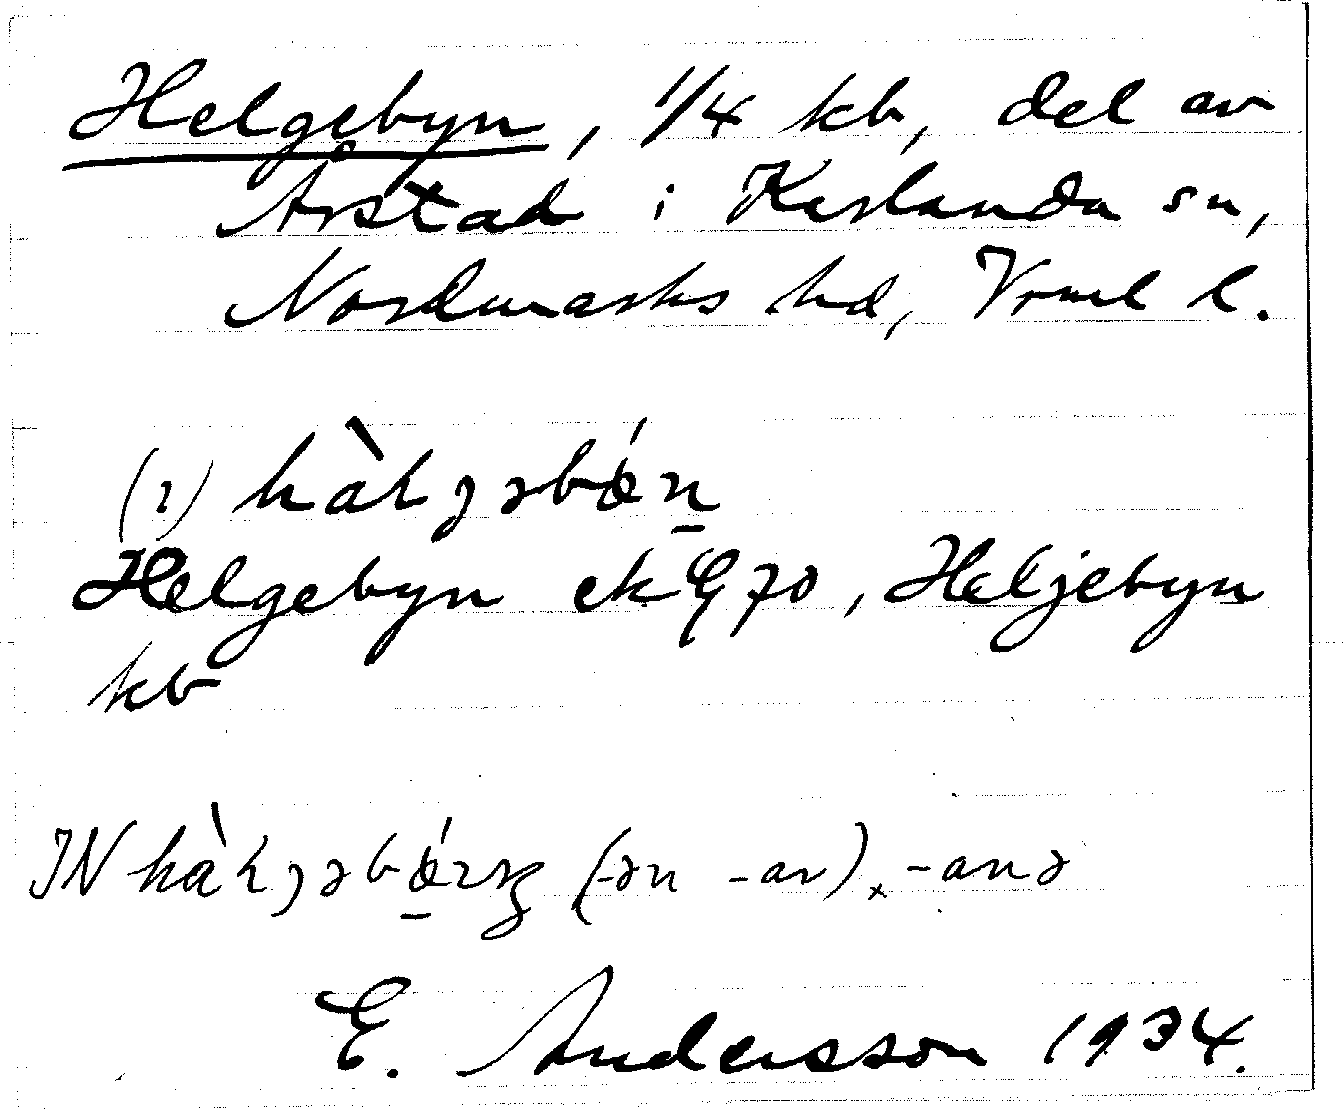 Helgebyn, 1/4 kb, del av
Årstad i Karlanda sn,
Nordmarks hd, Vrml l.
(ı) hàƚȷəbǿn̲
Helgebyn ek G 70, Heljebyn
kb
IN hàƚȷəbǿ̲ (-ən -ar), -anə
E. Andersson 1934.